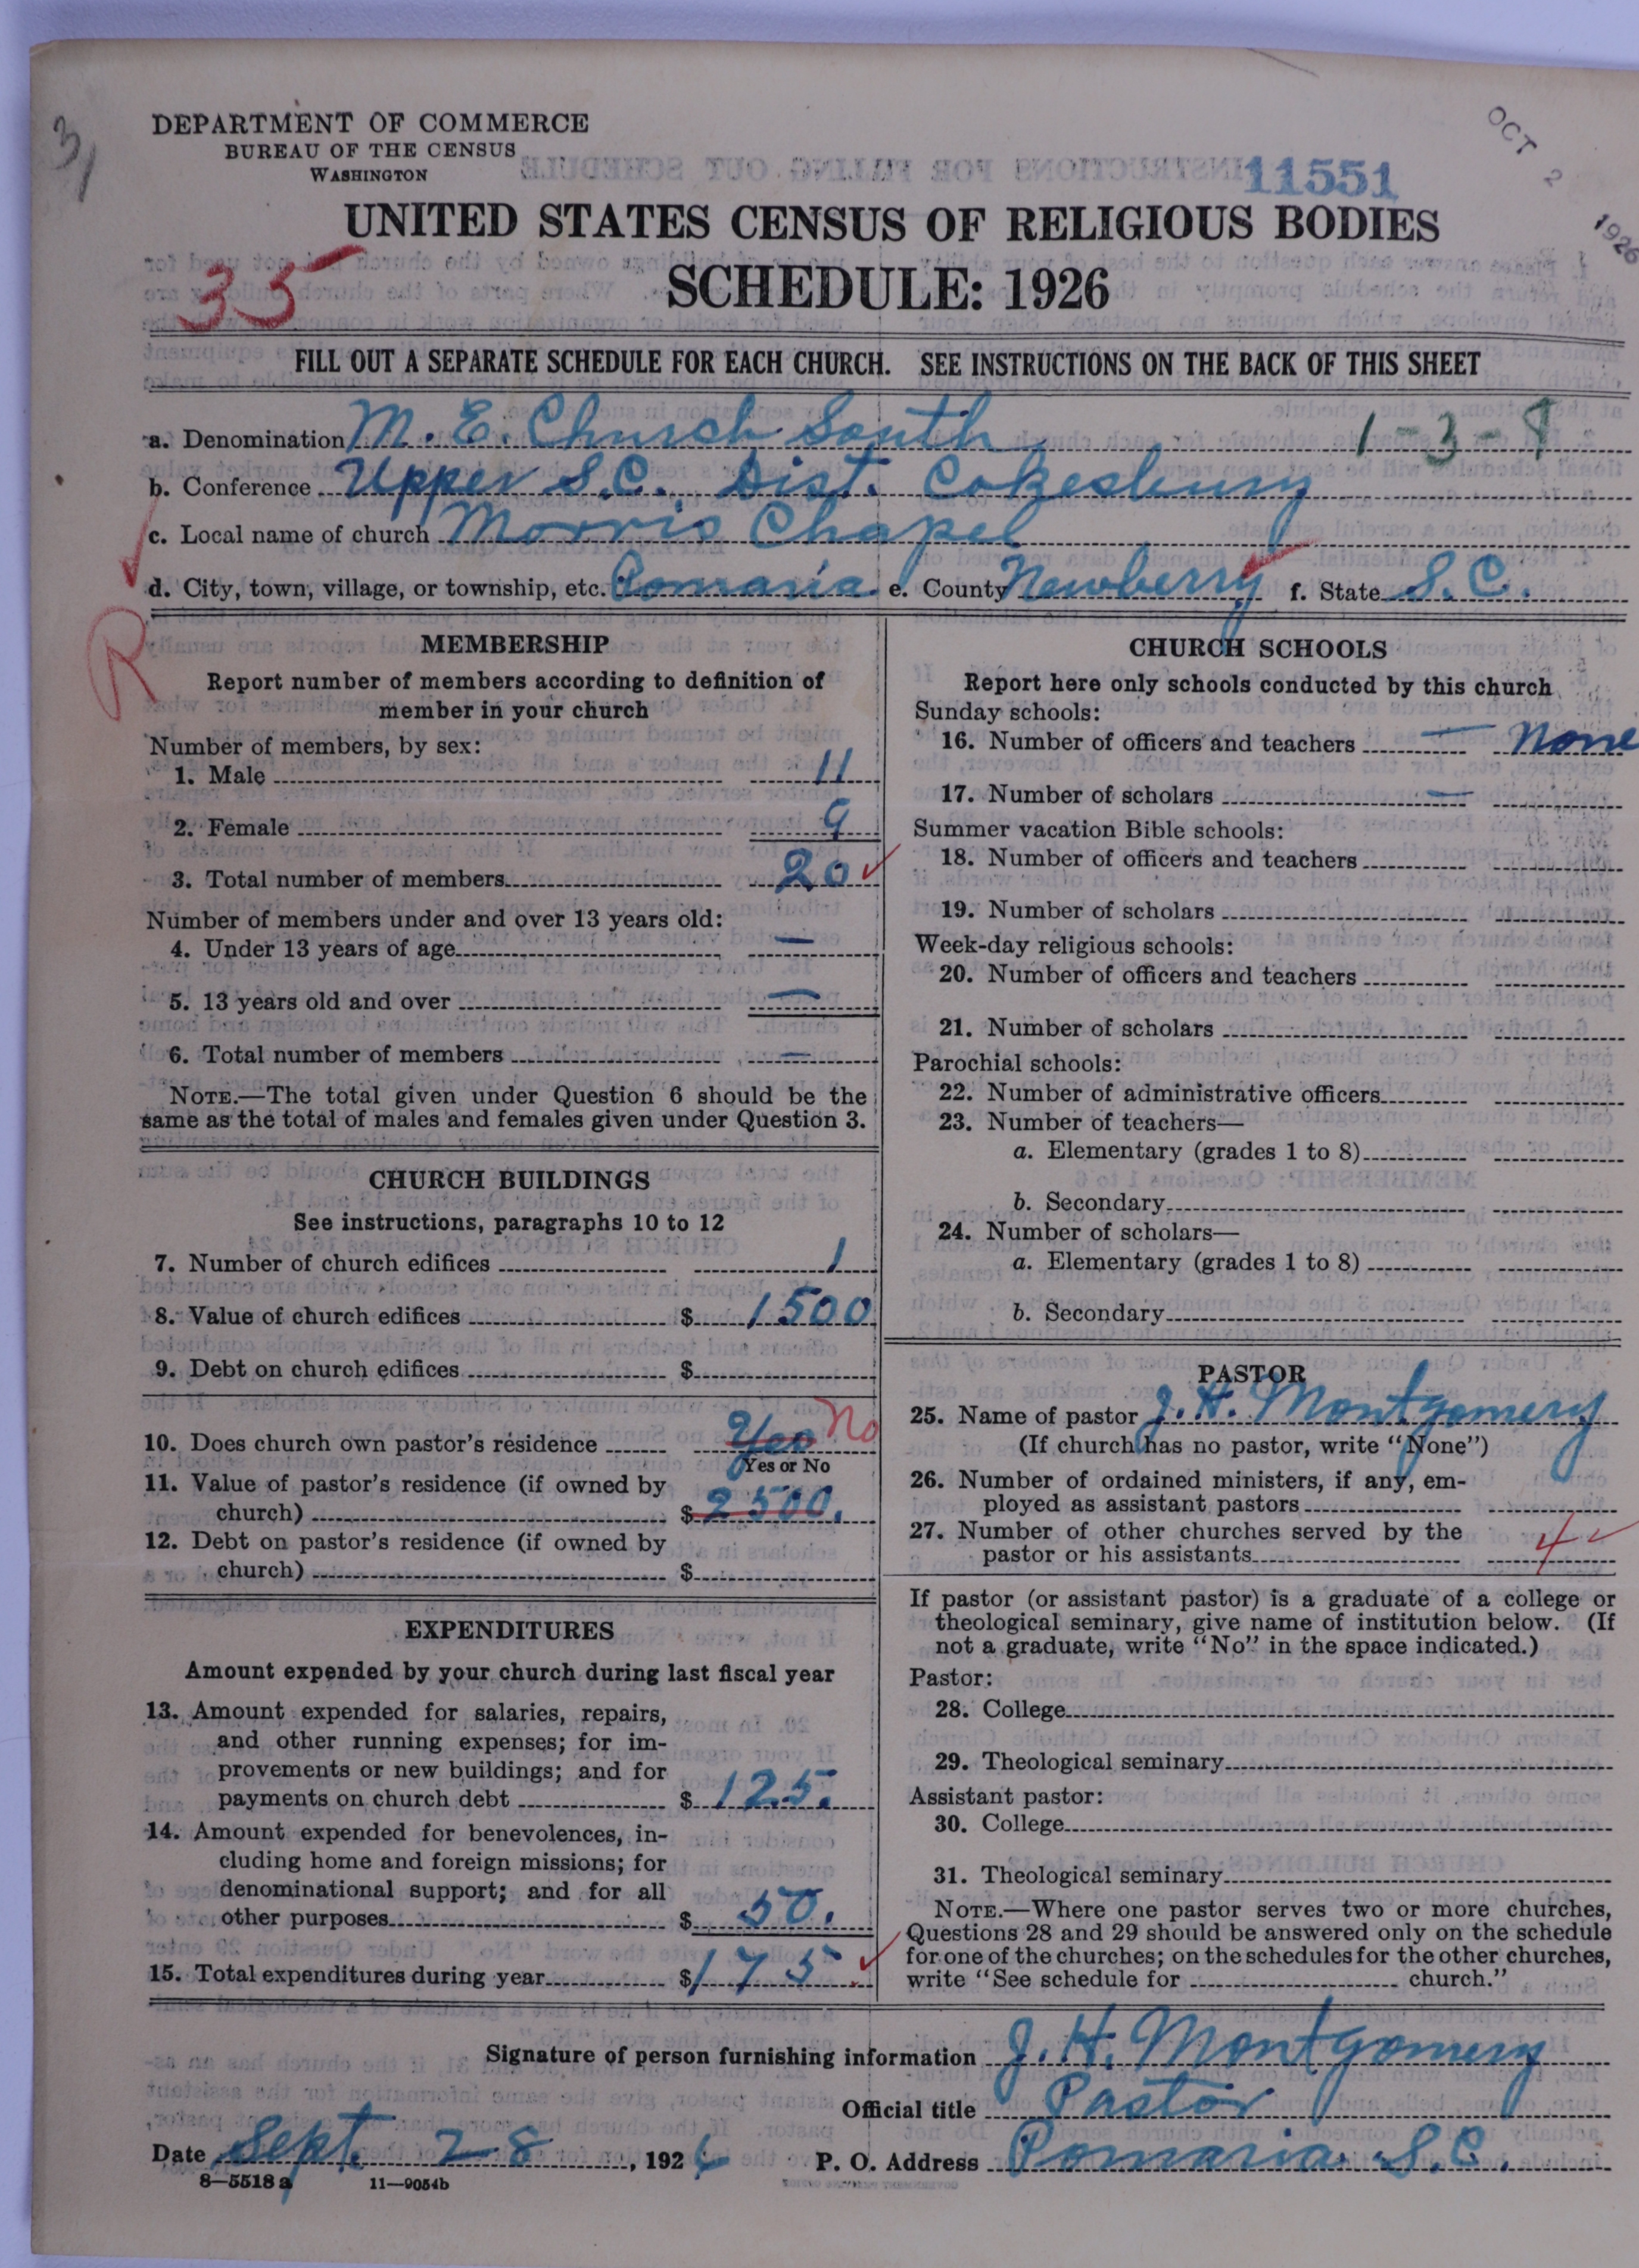 3/
DEPARTMENT OF COMMERCE
BUREAU OF THE CENSUS
WASHINGTON
11551
OCT 2 1926
UNITED STATES CENSUS OF RELIGIOUS BODIES
35
SCHEDULE: 1926
FILL OUT A SEPARATE SCHEDULE FOR EACH CHURCH. SEE INSTRUCTIONS ON THE BACK OF THIS SHEET
a. Denomination M. E. Church South 1-3-8
b. Conference Upper S.C. Dist. Cokesbury
c. Local name of church Morris Chapel
d. City, town, village, or township, etc. Pomaria e. County Newberry f. State S. C.
R
MEMBERSHIP
Report number of members according to definition of
member in your church
Number of members, by sex:
1. Male 11
2. Female 9
3. Total number of members 20 ✓
Number of members under and over 13 years old:
4. Under 13 years of age —
5. 13 years old and over —
6. Total number of members —
NOTE.—The total given under Question 6 should be the
same as the total of males and females given under Question 3.
CHURCH BUILDINGS
See instructions, paragraphs 10 to 12
7. Number of church edifices 1
8. Value of church edifices $ 1500
9. Debt on church edifices $
10. Does church own pastor's residence Yes No
Yes or No
11. Value of pastor's residence (if owned by
church) $ 2500.
12. Debt on pastor's residence (if owned by
church) $
EXPENDITURES
Amount expended by your church during last fiscal year
13. Amount expended for salaries, repairs,
and other running expenses; for im-
provements or new buildings; and for
payments on church debt $ 125.
14. Amount expended for benevolences, in-
cluding home and foreign missions; for
denominational support; and for all
other purposes $ 50.
15. Total expenditures during year $ 175. ✓
CHURCH SCHOOLS
Report here only schools conducted by this church
Sunday schools:
16. Number of officers and teachers — None
17. Number of scholars —
Summer vacation Bible schools:
18. Number of officers and teachers
19. Number of scholars
Week-day religious schools:
20. Number of officers and teachers
21. Number of scholars
Parochial schools:
22. Number of administrative officers
23. Number of teachers—
a. Elementary (grades 1 to 8)
b. Secondary
24. Number of scholars—
a. Elementary (grades 1 to 8)
b. Secondary
PASTOR
25. Name of pastor J. H. Montgomery
(If church has no pastor, write "None")
26. Number of ordained ministers, if any, em-
ployed as assistant pastors
27. Number of other churches served by the
pastor or his assistants 4 ✓
If pastor (or assistant pastor) is a graduate of a college or
theological seminary, give name of institution below. (If
not a graduate, write "No" in the space indicated.)
Pastor:
28. College
29. Theological seminary
Assistant pastor:
30. College
31. Theological seminary
NOTE.—Where one pastor serves two or more churches,
Questions 28 and 29 should be answered only on the schedule
for one of the churches; on the schedules for the other churches,
write "See schedule for church."
Signature of person furnishing information J. H. Montgomery
Official title Pastor
Date Sept. 28, 1926 P. O. Address Pomaria S.C.
8—5518 a 11—9054b